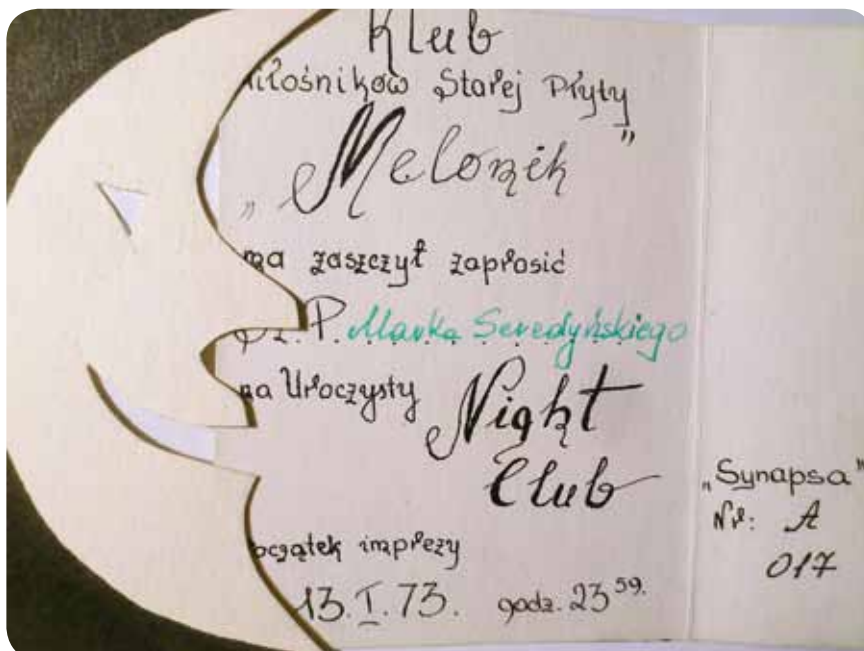 Klub
miłośników Starej Płyty
„Melonik”
ma zaszczyt zaprosić
Sz. P. Marka Seredyńskiego
na Uroczysty Night
Club
początek imprezy
13.I.73. godz. 23 59.
„Synapsa”
Nr: A
017